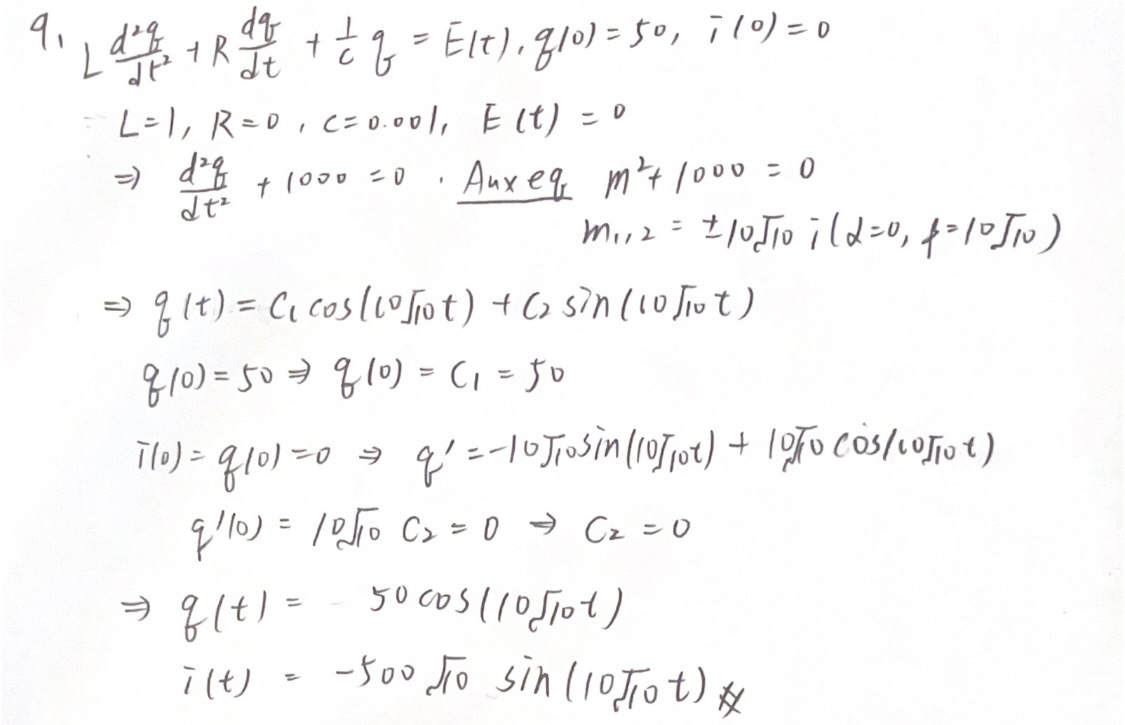 9. L d²q/dt² + R dq/dt + 1/c q = E(t), q(0) = 50, i(0) = 0
L=1, R=0, c=0.001, E(t) = 0
⇒ d²q/dt² + 1000 = 0. Aux eq m² + 1000 = 0
m₁,₂ = ±10√10 i (α=0, β=10√10)
⇒ q(t) = C₁ cos(10√10 t) + C₂ sin(10√10 t)
q(0) = 50 ⇒ q(0) = C₁ = 50
i(0) = q(0) = 0 ⇒ q' = -10√10 sin(10√10 t) + 10√10 cos(10√10 t)
q'(0) = 10√10 C₂ = 0 ⇒ C₂ = 0
⇒ q(t) = 50 cos(10√10 t)
i(t) = -500√10 sin(10√10 t) #